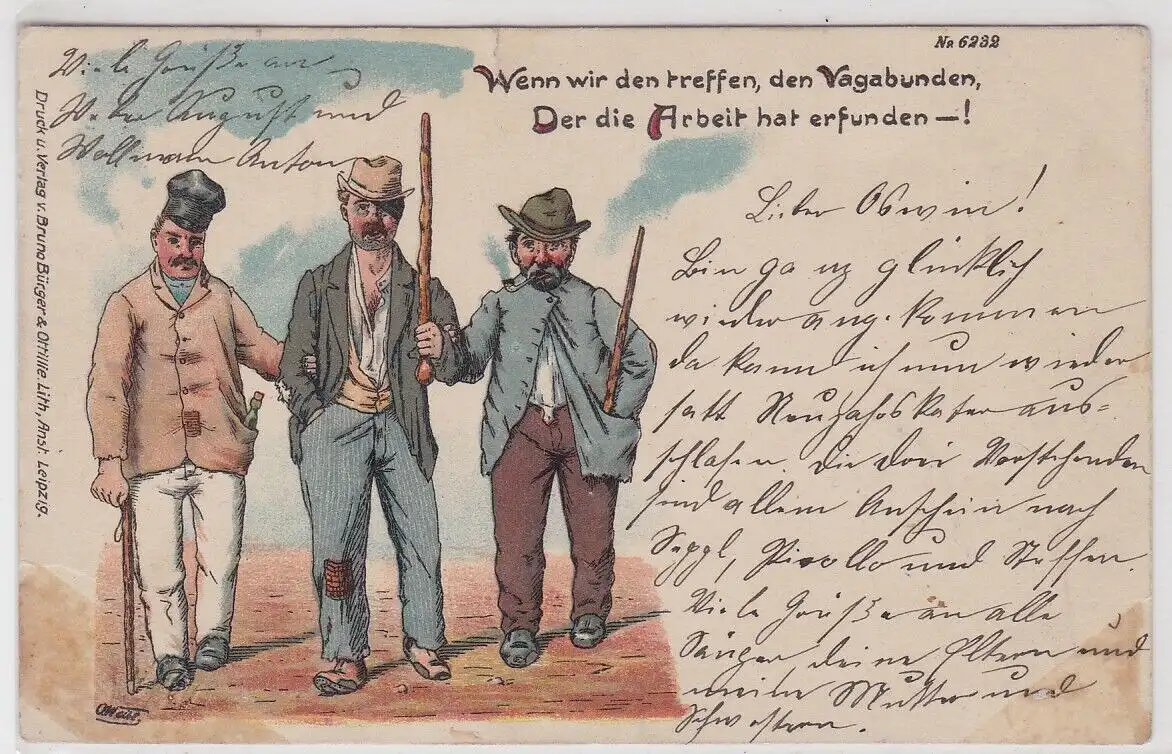 No 6232
Wenn wir den treffen, den Vagabunden,
Der die Arbeit hat erfunden —!
Viele Grüße an
Vetter August und
Anton
Lieber Oswin!
Bin ganz glücklich
wieder angekommen
da kann ich nun wieder
satt Neujahrskater aus-
schlafen. die drei Vorstehenden
sind allem Anschein nach
Seppl, Piccollo und Steffen.
Viele Grüße an alle
Sänger, deine Eltern und
meine Mutter und
Schwestern.
Druck u. Verlag v. Bruno Bürger & Ottillie Lith. Anst. Leipzig.